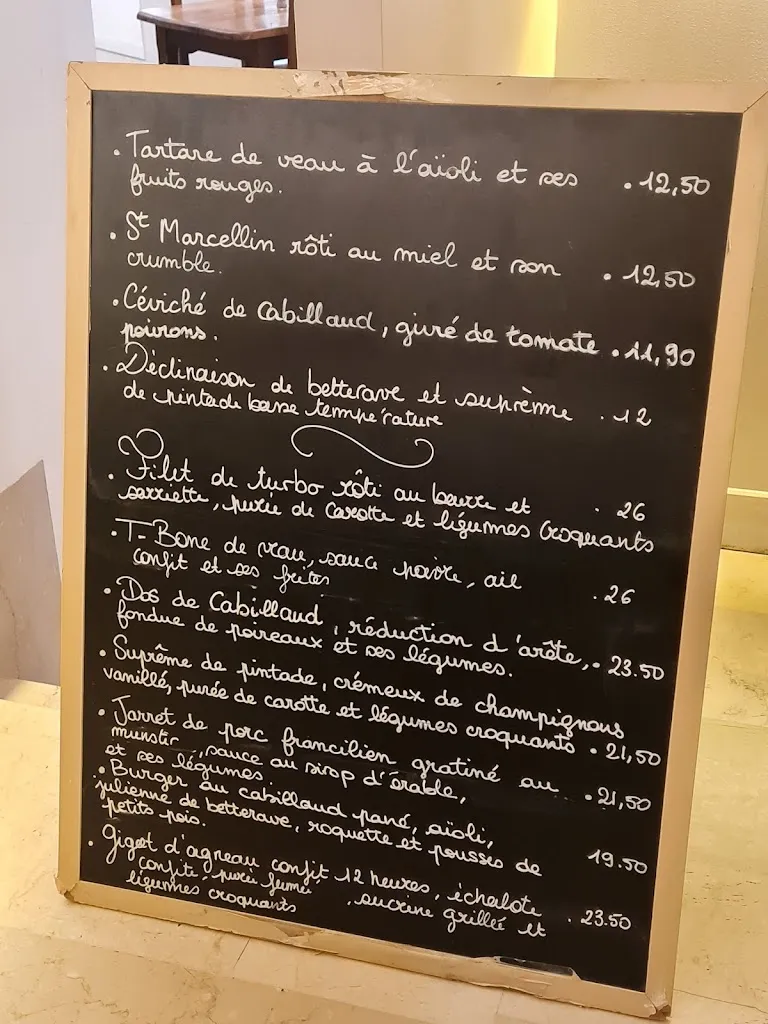 . Tartare de veau à l'aïoli et ses . 12,50
fruits rouges.
. St Marcellin rôti au miel et son . 12,50
crumble.
. Céviché de Cabillaud, givré de tomate . 11,90
poivrons.
. Déclinaison de betterave et suprème . 12
de pintade basse température
. Filet de turbo rôti au beurre et . 26
sarriette, purée de carotte et légumes croquants
. T-Bone de veau, sauce poivre, ail . 26
confit et ses frites
. Dos de Cabillaud, réduction d'arête, . 23.50
fondue de poireaux et ses légumes.
. Suprême de pintade, crémeux de champignons
vanillé, purée de carotte et légumes croquants . 21,50
. Jarret de porc francilien gratiné au . 21,50
munster, sauce au sirop d'érable,
et ses légumes
. Burger au cabillaud pané, aïoli,
julienne de betterave, roquette et pousses de 19.50
petits pois.
. Gigot d'agneau confit 12 heures, échalote . 23.50
confite, purée fumé, sucrine grillée et
légumes croquants